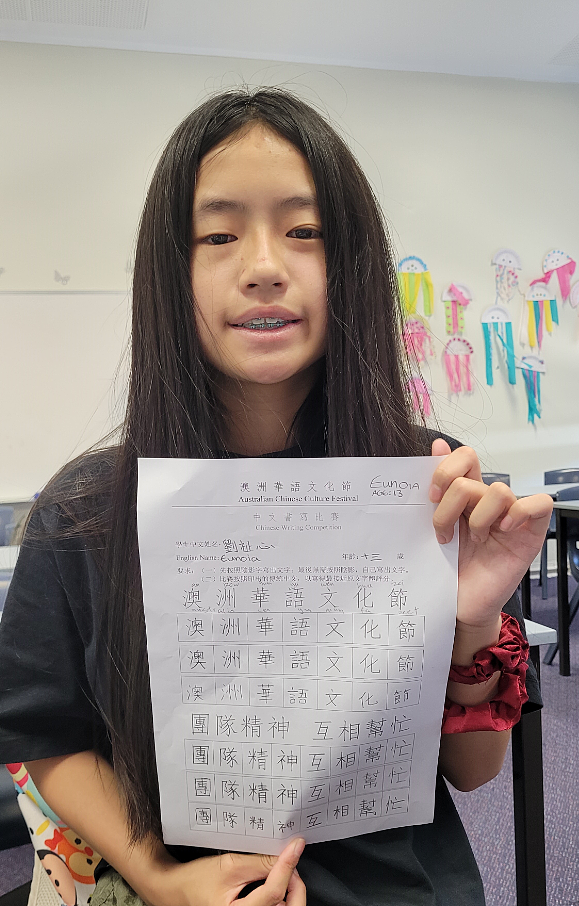 澳洲華語文化節 Eunoia
Australian Chinese Culture Festival AGE: 13
中文書寫比賽
Chinese Writing Competition
學生中文姓名: 劉祉心
English Name: Eunoia 年齡: 十三 歲
澳洲華語文化節
澳洲華語文化節
澳洲華語文化節
澳洲華語文化節
團隊精神 互相幫忙
團隊精神互相幫忙
團隊精神互相幫忙
團隊精神互相幫忙